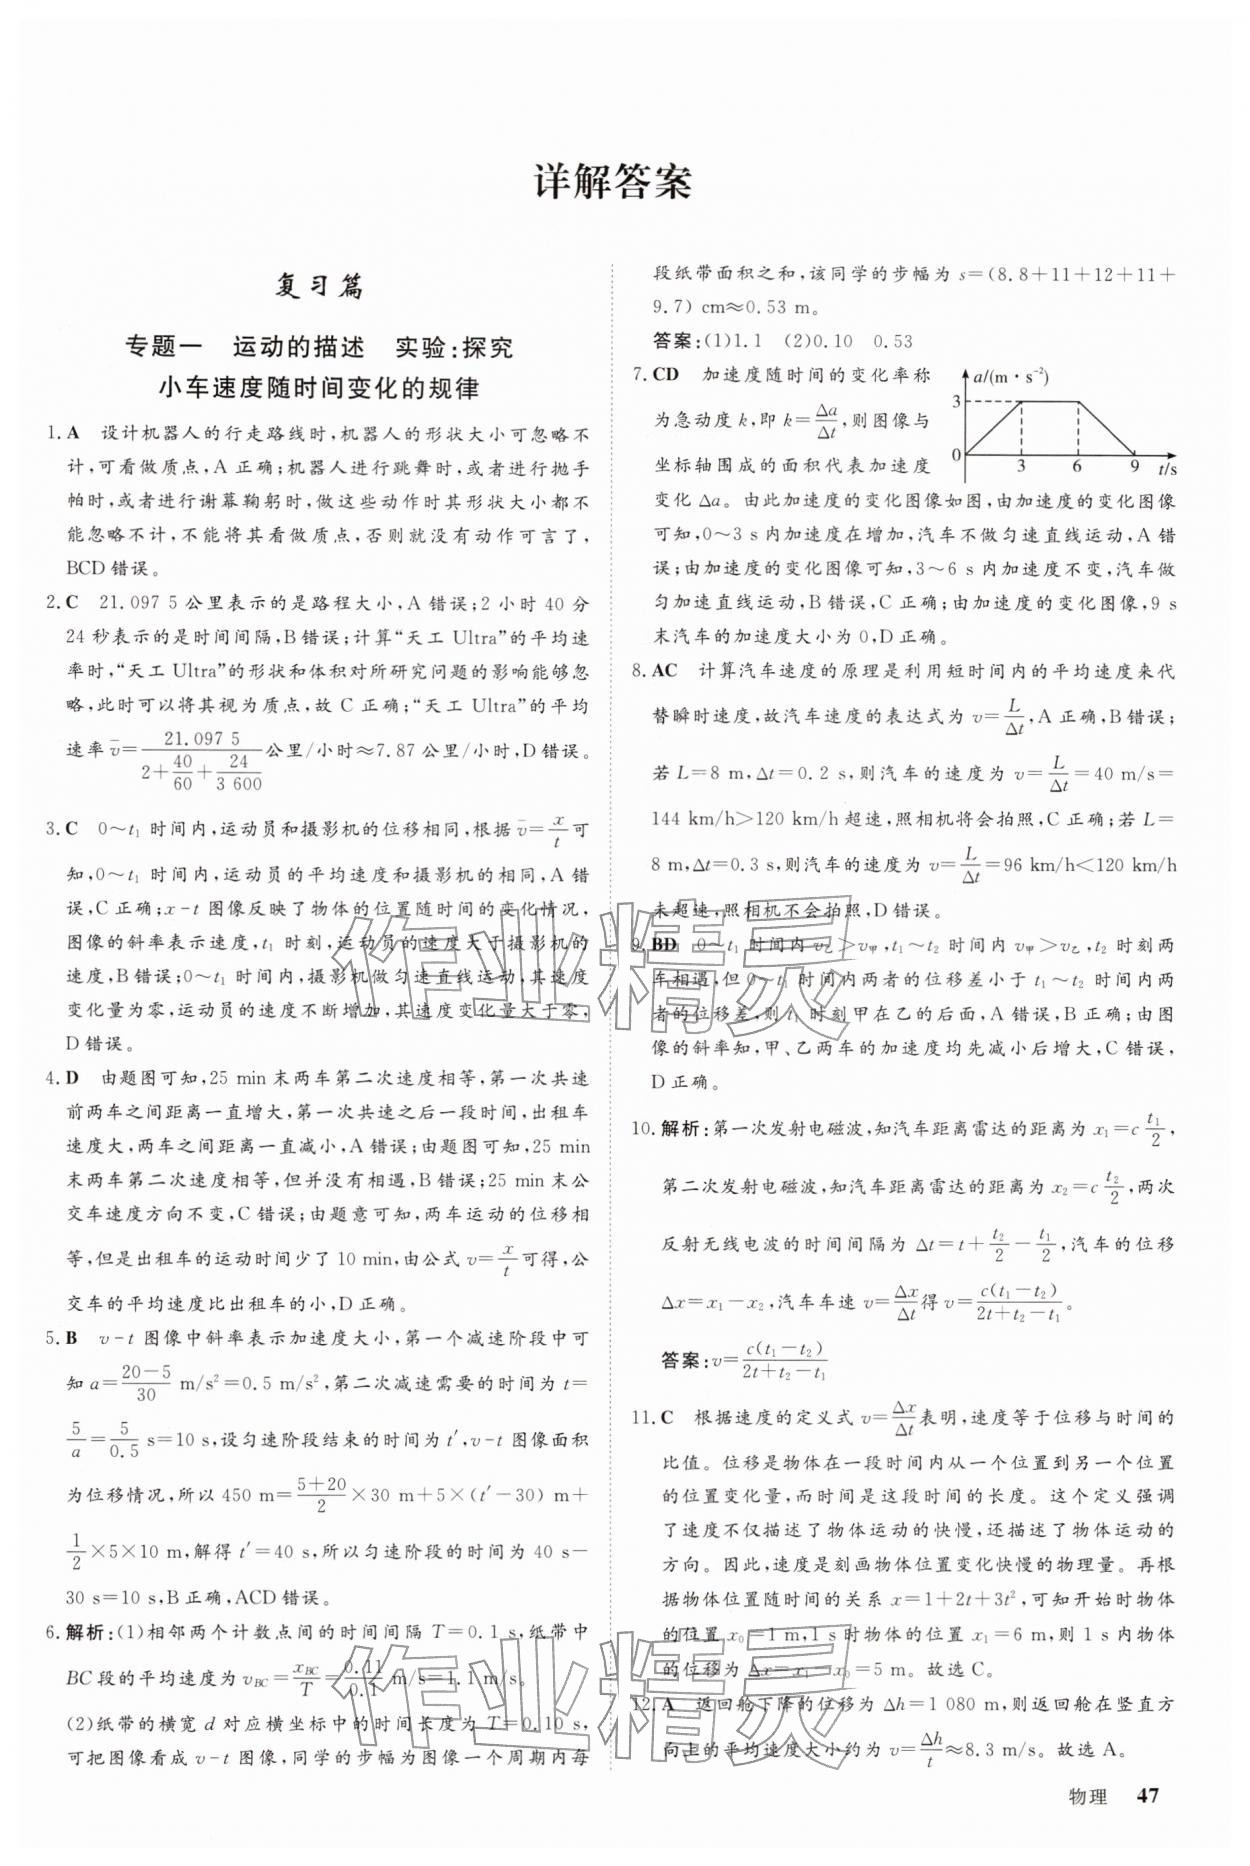 详解答案
复习篇
专题一 运动的描述 实验:探究
小车速度随时间变化的规律
1. A 设计机器人的行走路线时,机器人的形状大小可忽略不
计,可看做质点,A 正确;机器人进行跳舞时,或者进行抛手
帕时,或者进行谢幕鞠躬时,做这些动作时其形状大小都不
能忽略不计,不能将其看做质点,否则就没有动作可言了,
BCD 错误。
2. C 21.097 5 公里表示的是路程大小,A 错误;2 小时 40 分
24 秒表示的是时间间隔,B 错误;计算“天工 Ultra”的平均速
率时,“天工 Ultra”的形状和体积对所研究问题的影响能够忽
略,此时可以将其视为质点,故 C 正确;“天工 Ultra”的平均
速率 v̄=21.097 5/(2+40/60+24/3 600)公里/小时≈7.87 公里/小时,D 错误。
3. C 0～t₁ 时间内,运动员和摄影机的位移相同,根据 v̄=x/t 可
知,0～t₁ 时间内,运动员的平均速度和摄影机的相同,A 错
误,C 正确;x-t 图像反映了物体的位置随时间的变化情况,
图像的斜率表示速度,t₁ 时刻,运动员的速度大于摄影机的
速度,B 错误;0～t₁ 时间内,摄影机做匀速直线运动,其速度
变化量为零,运动员的速度不断增加,其速度变化量大于零,
D 错误。
4. D 由题图可知,25 min 末两车第二次速度相等,第一次共速
前两车之间距离一直增大,第一次共速之后一段时间,出租车
速度大,两车之间距离一直减小,A 错误;由题图可知,25 min
末两车第二次速度相等,但并没有相遇,B 错误;25 min 末公
交车速度方向不变,C 错误;由题意可知,两车运动的位移相
等,但是出租车的运动时间少了 10 min,由公式 v=x/t 可得,公
交车的平均速度比出租车的小,D 正确。
5. B v-t 图像中斜率表示加速度大小,第一个减速阶段中可
知 a=(20-5)/30 m/s²=0.5 m/s²,第二次减速需要的时间为 t=
5/a=5/0.5 s=10 s,设匀速阶段结束的时间为 t′,v-t 图像面积
为位移情况,所以 450 m=(5+20)/2×30 m+5×(t′-30) m+
1/2×5×10 m,解得 t′=40 s,所以匀速阶段的时间为 40 s-
30 s=10 s,B 正确,ACD 错误。
6. 解析:(1)相邻两个计数点间的时间间隔 T=0.1 s,纸带中
BC 段的平均速度为 v_BC=x_BC/T=0.11/0.1 m/s=1.1 m/s。
(2)纸带的横宽 d 对应横坐标中的时间长度为 T=0.10 s,
可把图像看成 v-t 图像,同学的步幅为图像一个周期内每
段纸带面积之和,该同学的步幅为 s=(8.8+11+12+11+
9.7) cm≈0.53 m。
答案:(1)1.1 (2)0.10 0.53
7. CD 加速度随时间的变化率称
为急动度 k,即 k=Δa/Δt,则图像与
坐标轴围成的面积代表加速度
a/(m·s⁻²)
3
0
3 6 9 t/s
变化 Δa。由此加速度的变化图像如图,由加速度的变化图像
可知,0～3 s 内加速度在增加,汽车不做匀速直线运动,A 错
误;由加速度的变化图像可知,3～6 s 内加速度不变,汽车做
匀加速直线运动,B 错误,C 正确;由加速度的变化图像,9 s
末汽车的加速度大小为 0,D 正确。
8. AC 计算汽车速度的原理是利用短时间内的平均速度来代
替瞬时速度,故汽车速度的表达式为 v=L/Δt,A 正确,B 错误;
若 L=8 m,Δt=0.2 s,则汽车的速度为 v=L/Δt=40 m/s=
144 km/h>120 km/h 超速,照相机将会拍照,C 正确;若 L=
8 m,Δt=0.3 s,则汽车的速度为 v=L/Δt=96 km/h<120 km/h
未超速,照相机不会拍照,D 错误。
9. BD 0～t₁ 时间内 v乙>v甲,t₁～t₂ 时间内 v甲>v乙,t₂ 时刻两
车相遇,但 0～t₁ 时间内两者的位移差小于 t₁～t₂ 时间内两
者的位移差,则 t₁ 时刻甲在乙的后面,A 错误,B 正确;由图
像的斜率知,甲、乙两车的加速度均先减小后增大,C 错误,
D 正确。
10. 解析:第一次发射电磁波,知汽车距离雷达的距离为 x₁=c t₁/2,
第二次发射电磁波,知汽车距离雷达的距离为 x₂=c t₂/2,两次
反射无线电波的时间间隔为 Δt=t+t₂/2-t₁/2,汽车的位移
Δx=x₁-x₂,汽车车速 v=Δx/Δt得 v=c(t₁-t₂)/(2t+t₂-t₁)。
答案:v=c(t₁-t₂)/(2t+t₂-t₁)
11. C 根据速度的定义式 v=Δx/Δt表明,速度等于位移与时间的
比值。位移是物体在一段时间内从一个位置到另一个位置
的位置变化量,而时间是这段时间的长度。这个定义强调
了速度不仅描述了物体运动的快慢,还描述了物体运动的
方向。因此,速度是刻画物体位置变化快慢的物理量。再根
据物体位置随时间的关系 x=1+2t+3t²,可知开始时物体
的位置 x₀=1 m,1 s 时物体的位置 x₁=6 m,则 1 s 内物体
的位移为 Δx=x₁-x₀=5 m。故选 C。
12. A 返回舱下降的位移为 Δh=1 080 m,则返回舱在竖直方
向上的平均速度大小约为 v=Δh/t≈8.3 m/s。故选 A。
作业精灵
作业精灵
物理 47